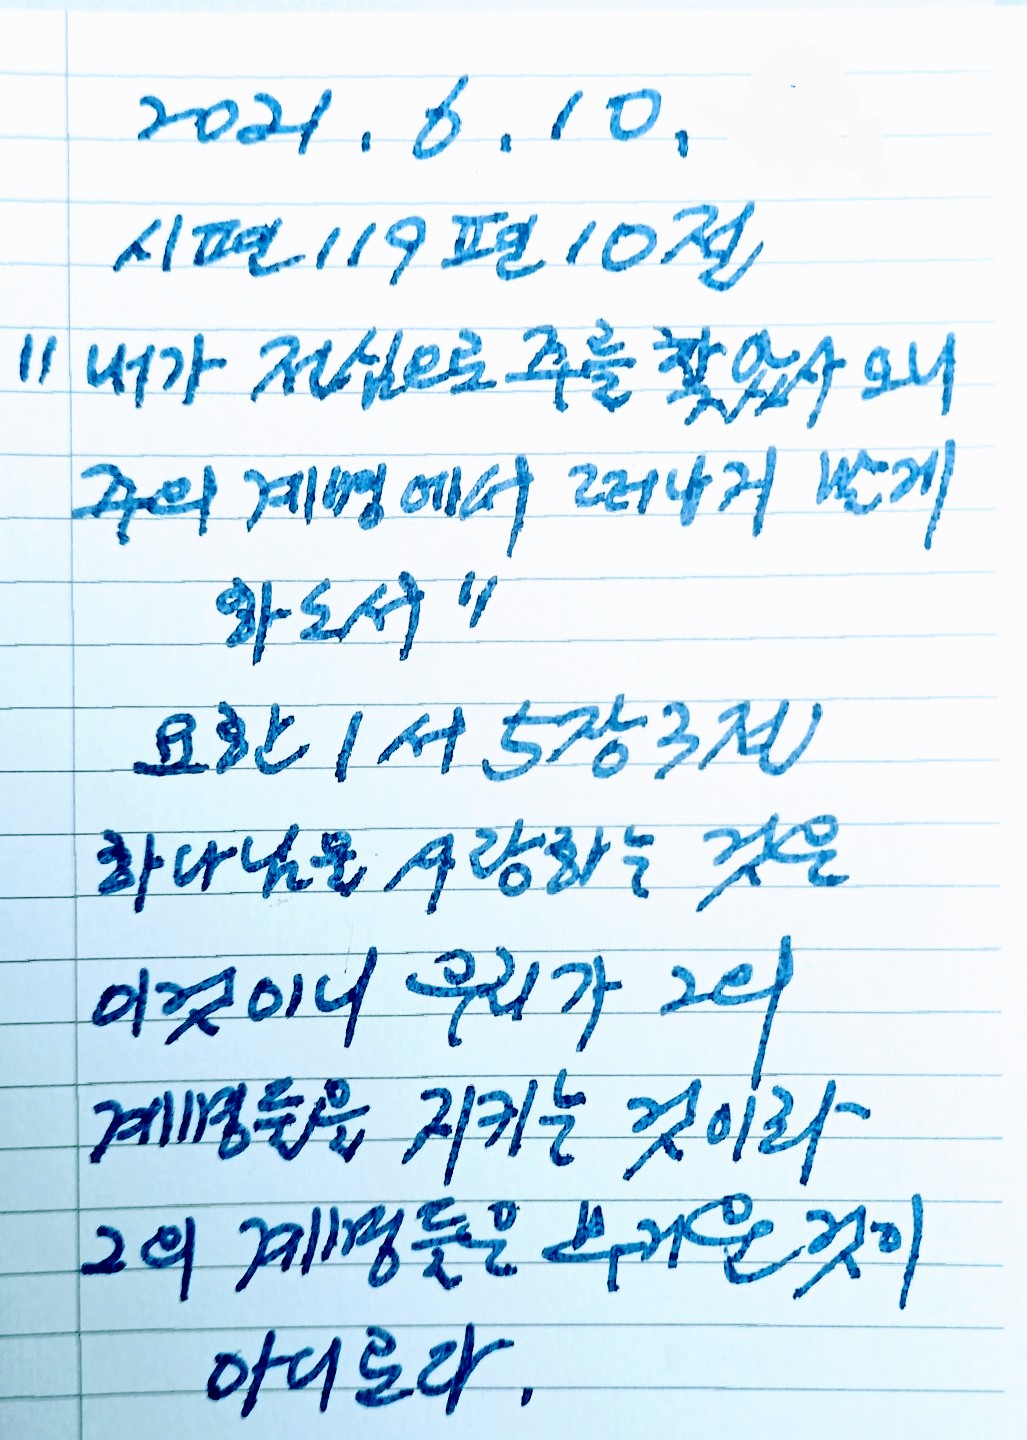 2021. 6. 10.
시편 119편 10절
"내가 전심으로 주를 찾았사오니
주의 계명에서 떠나지 말게
하소서"
요한 1서 5장 3절
하나님을 사랑하는 것은
이것이니 우리가 그의
계명들을 지키는 것이라
그의 계명들은 무거운 것이
아니로다.